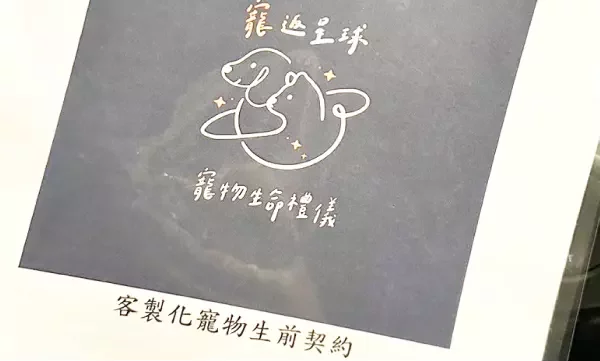 寵返星球
寵物生命禮儀
客製化寵物生前契約